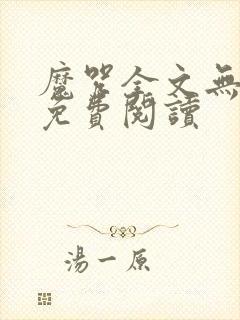 魔咒全文無
免費閱讀
湯一原